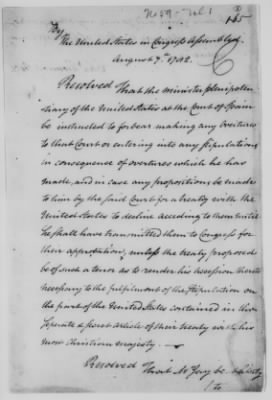 No 59 - Vol 1
165
By
The United States in Congress Assembled
August 7th 1782
Resolved That the minister plenipoten
tiary of the United States at the Court of Spain
be instructed to forbear making any Overtures
to that Court or entering into any stipulations
in consequence of overtures which he has
made, and in case any propositions be made
to him by the said Court for a treaty with the
United States to decline acceding to them until
he shall have transmitted them to Congress for
their approbation, unless the treaty proposed
be of such a tenor as to render his accession thereto
necessary to the fulfilment of the stipulation on
the part of the United States contained in the
separate & secret article of their treaty with his
most Christian majesty.
Resolved That Mr Jay be at liberty
to